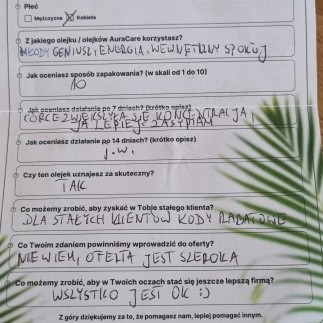 Płeć
Mężczyzna Kobieta
Z jakiego olejku / olejków AuraCare korzystasz?
MŁODY GENIUSZ, ENERGIA, WEWNĘTRZNY SPOKÓJ
Jak oceniasz sposób zapakowania? (w skali od 1 do 10)
10
Jak oceniasz działanie po 7 dniach? (krótko opisz)
CÓRCE ZWIĘKSZYŁA SIĘ KONCENTRACJA,
JA LEPIEJ ZASYPIAM
Jak oceniasz działanie po 14 dniach? (krótko opisz)
j.w.
Czy ten olejek uznajesz za skuteczny?
TAK
Co możemy zrobić, aby zyskać w Tobie stałego klienta?
DLA STAŁYCH KLIENTÓW KODY RABATOWE
Co Twoim zdaniem powinniśmy wprowadzić do oferty?
NIE WIEM, OFERTA JEST SZEROKA
Co możemy zrobić, aby w Twoich oczach stać się jeszcze lepszą firmą?
WSZYSTKO JEST OK :)
Z góry dziękujemy za to, że pomagasz nam, lepiej pomagać innym.